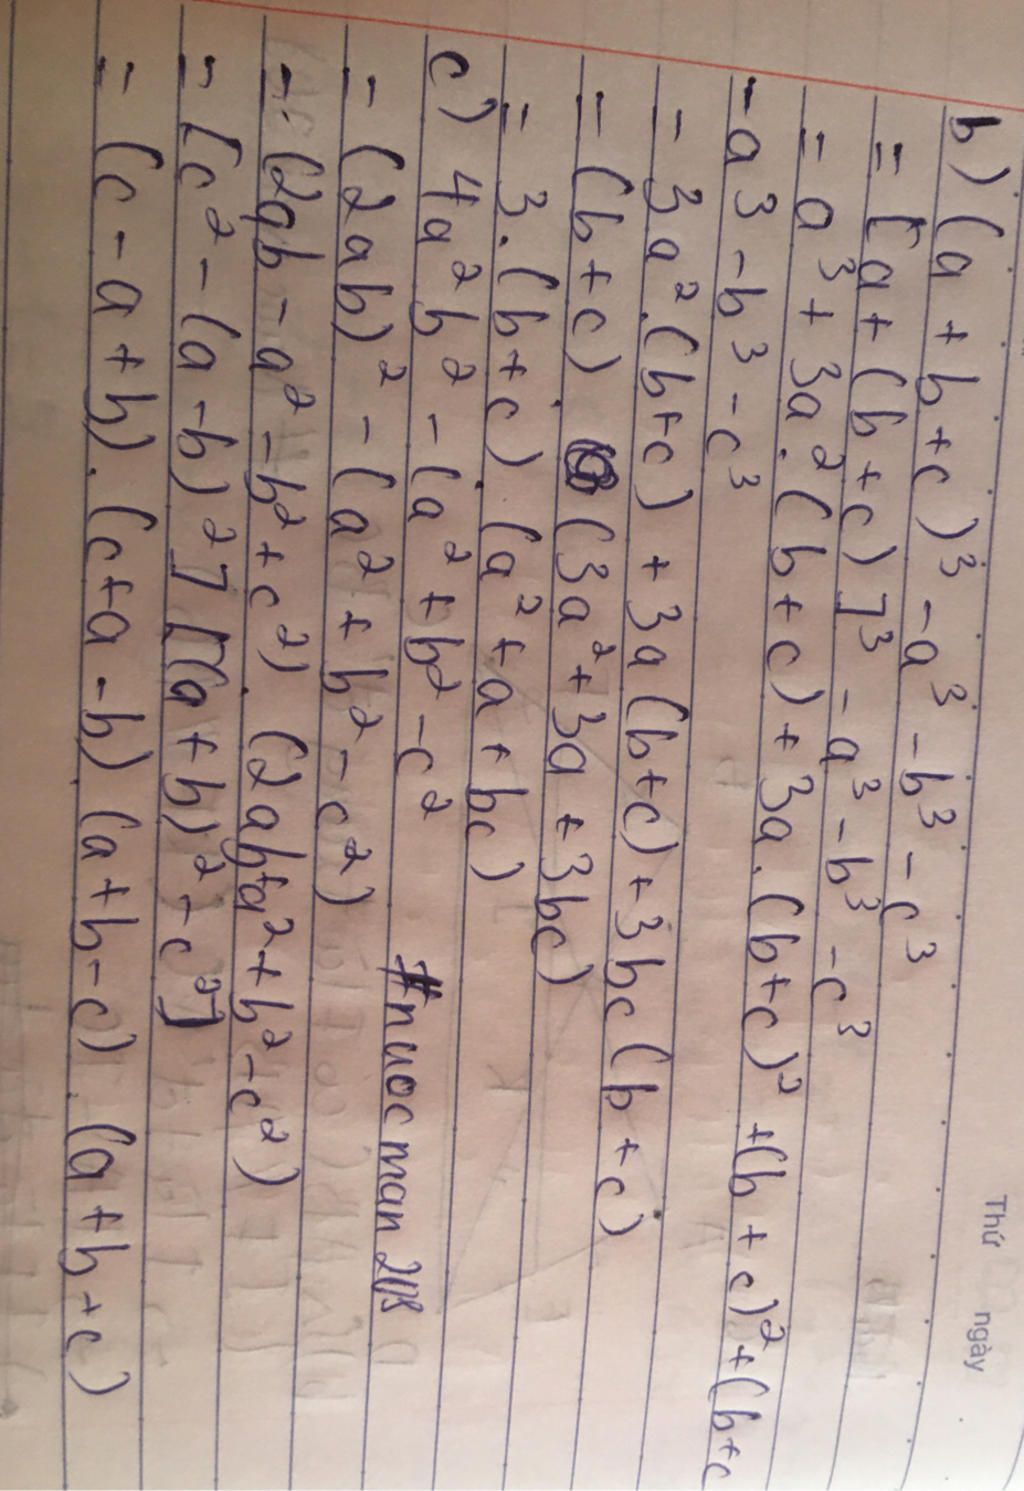 Thứ ngày
b) (a + b + c)³ - a³ - b³ - c³
= [a + (b + c)]³ - a³ - b³ - c³
= a³ + 3a².(b + c) + 3a.(b+c)² +(b + c)² + (b+c
- a³ - b³ - c³
= 3a².(b+c) + 3a(b+c) + 3bc(b+c)
= (b+c). (3a² + 3a + 3bc)
= 3.(b+c).(a² + a + bc)
c) 4a²b² - (a² + b² - c²
= (2ab)² - (a² + b² - c²)
= (2ab - a² - b² + c²). (2ab+a² + b² - c²)
= [c² - (a - b)²] [(a + b)² - c²]
= (c - a + b).(c+a - b).(a+b-c).(a+b+c)
#nuocman2118